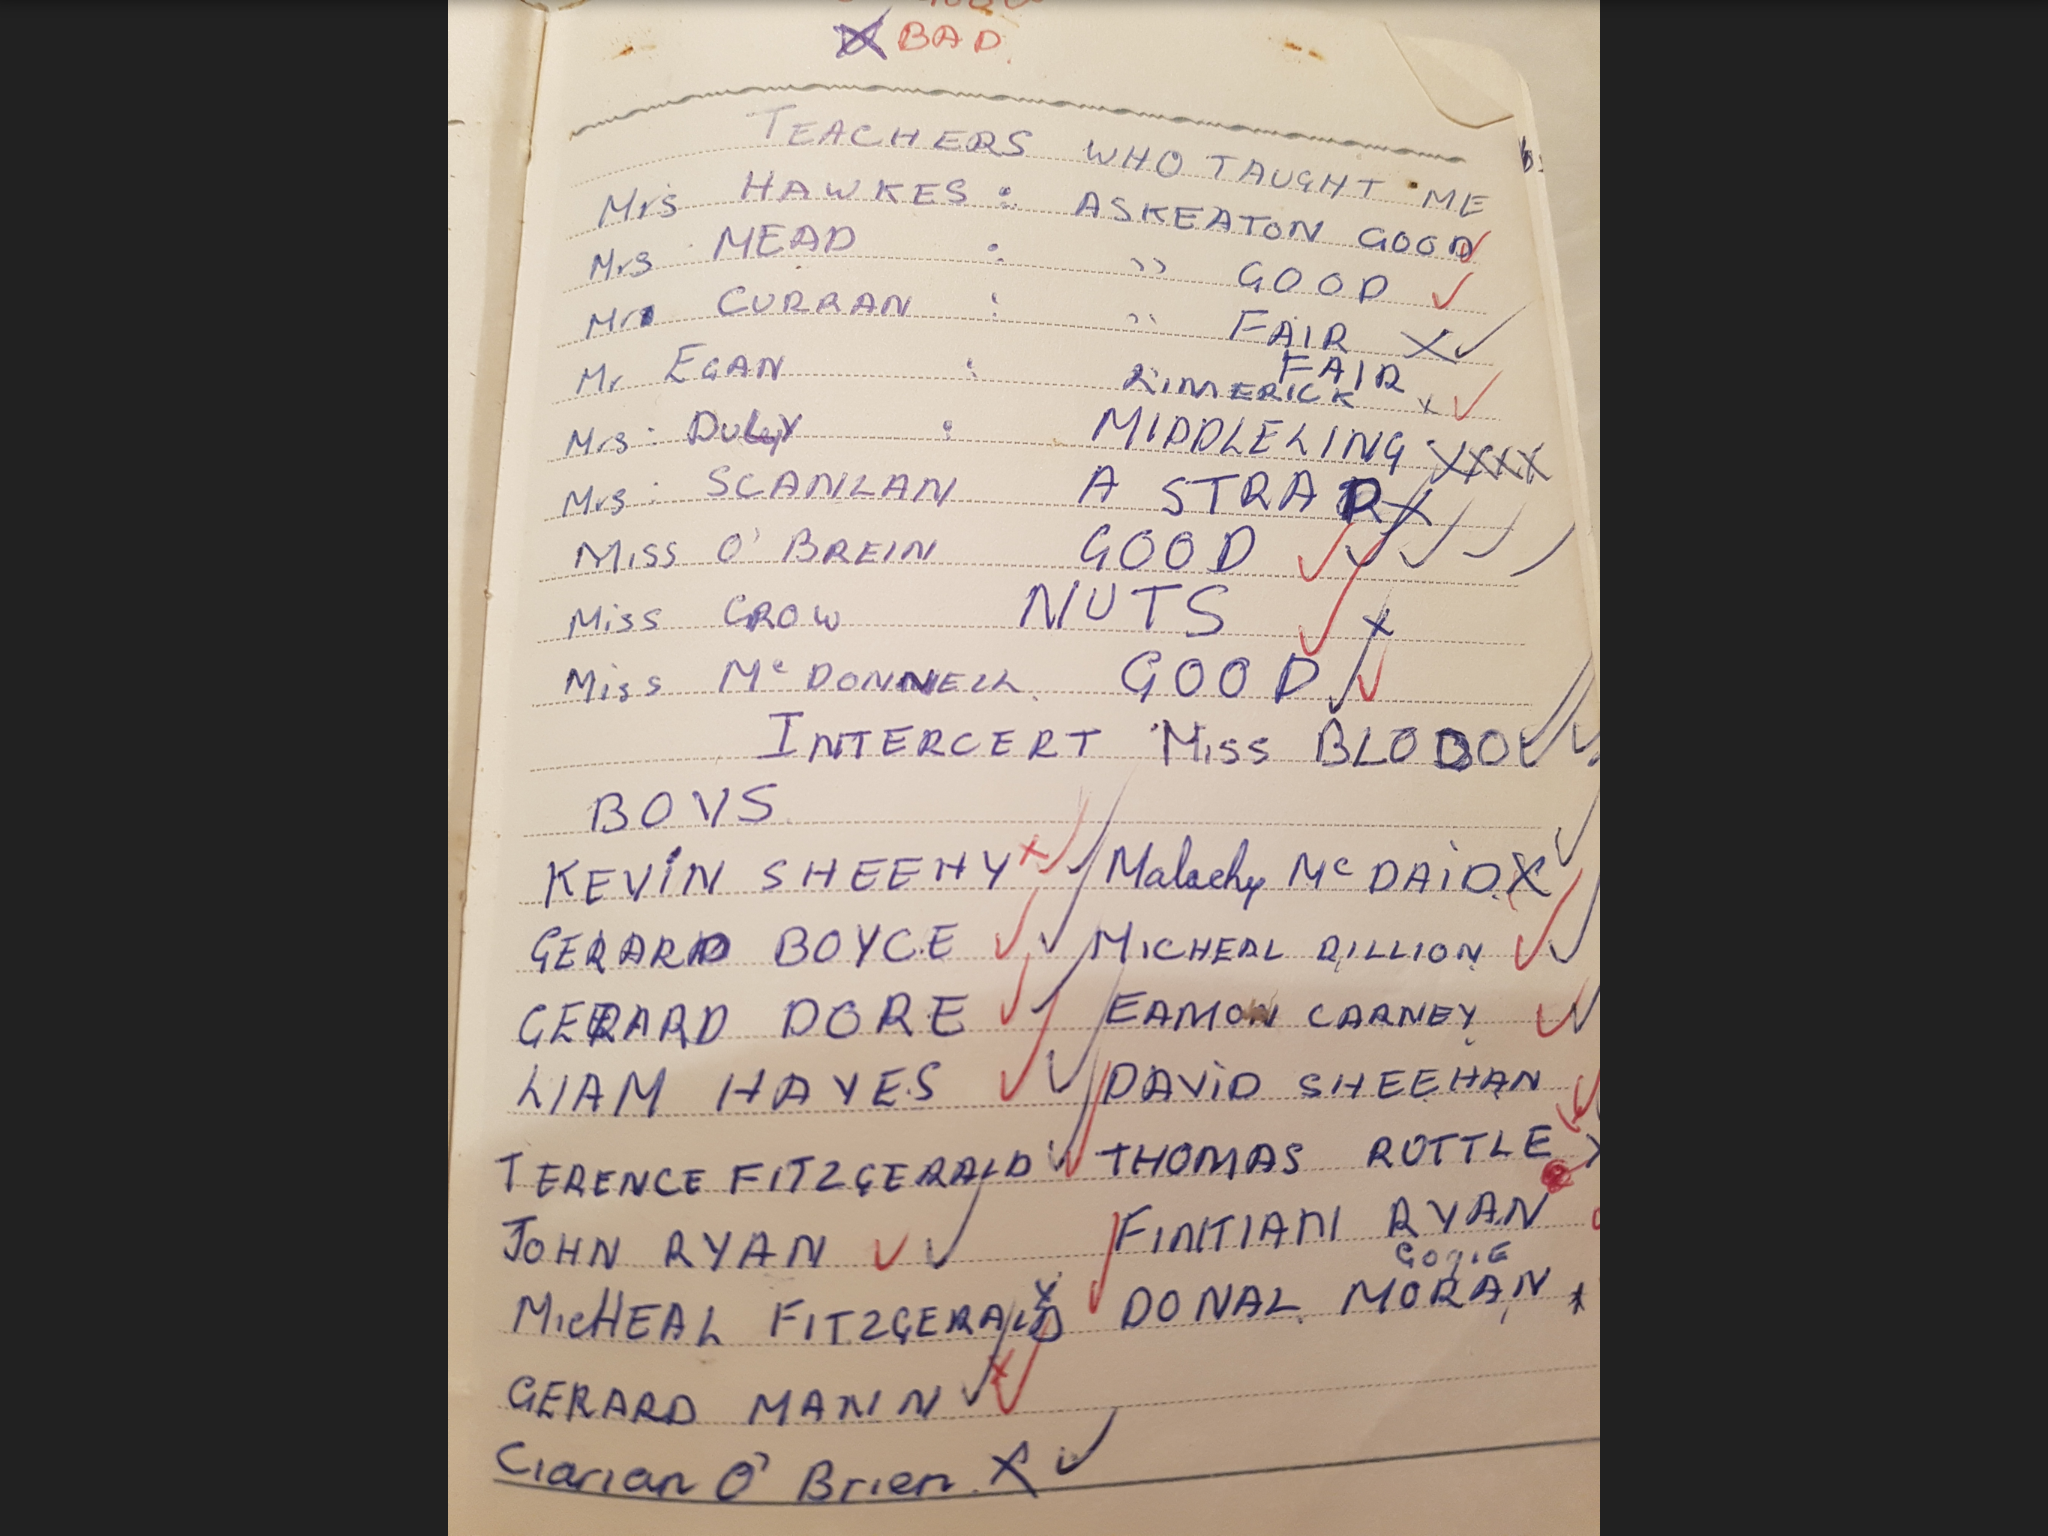 BAD.
TEACHERS WHO TAUGHT ME
Mrs HAWKES : ASKEATON GOOD ✓
Mrs MEAD : ,, GOOD ✓
Mr CURRAN : ,, FAIR X ✓
Mr EGAN : LIMERICK FAIR x ✓
Mrs : : MIDDLELING XXXX
Mrs : SCANLAN A STRAP X
MISS O'BREIN GOOD ✓ ✓ ✓ ✓
Miss CROW NUTS ✓ X
Miss McDONNELL. GOOD ✓ ✓
INTERCERT Miss
BOYS
KEVIN SHEEHY X ✓ ✓ Malachy McDAID X ✓
GERARD BOYCE ✓ ✓ MICHEAL DILLION ✓ ✓
GERARD DORE ✓ ✓ EAMON CARNEY ✓ ✓
LIAM HAYES ✓ ✓ DAVID SHEEHAN ✓
TERENCE FITZGERALD ✓ ✓ THOMAS RUTTLE X
JOHN RYAN ✓ ✓ RYAN
MIcHEAL FITZGERALD X ✓ DONAL MORAN X
GERARD MANIN ✓ X ✓
Ciarian O'Brien. X ✓